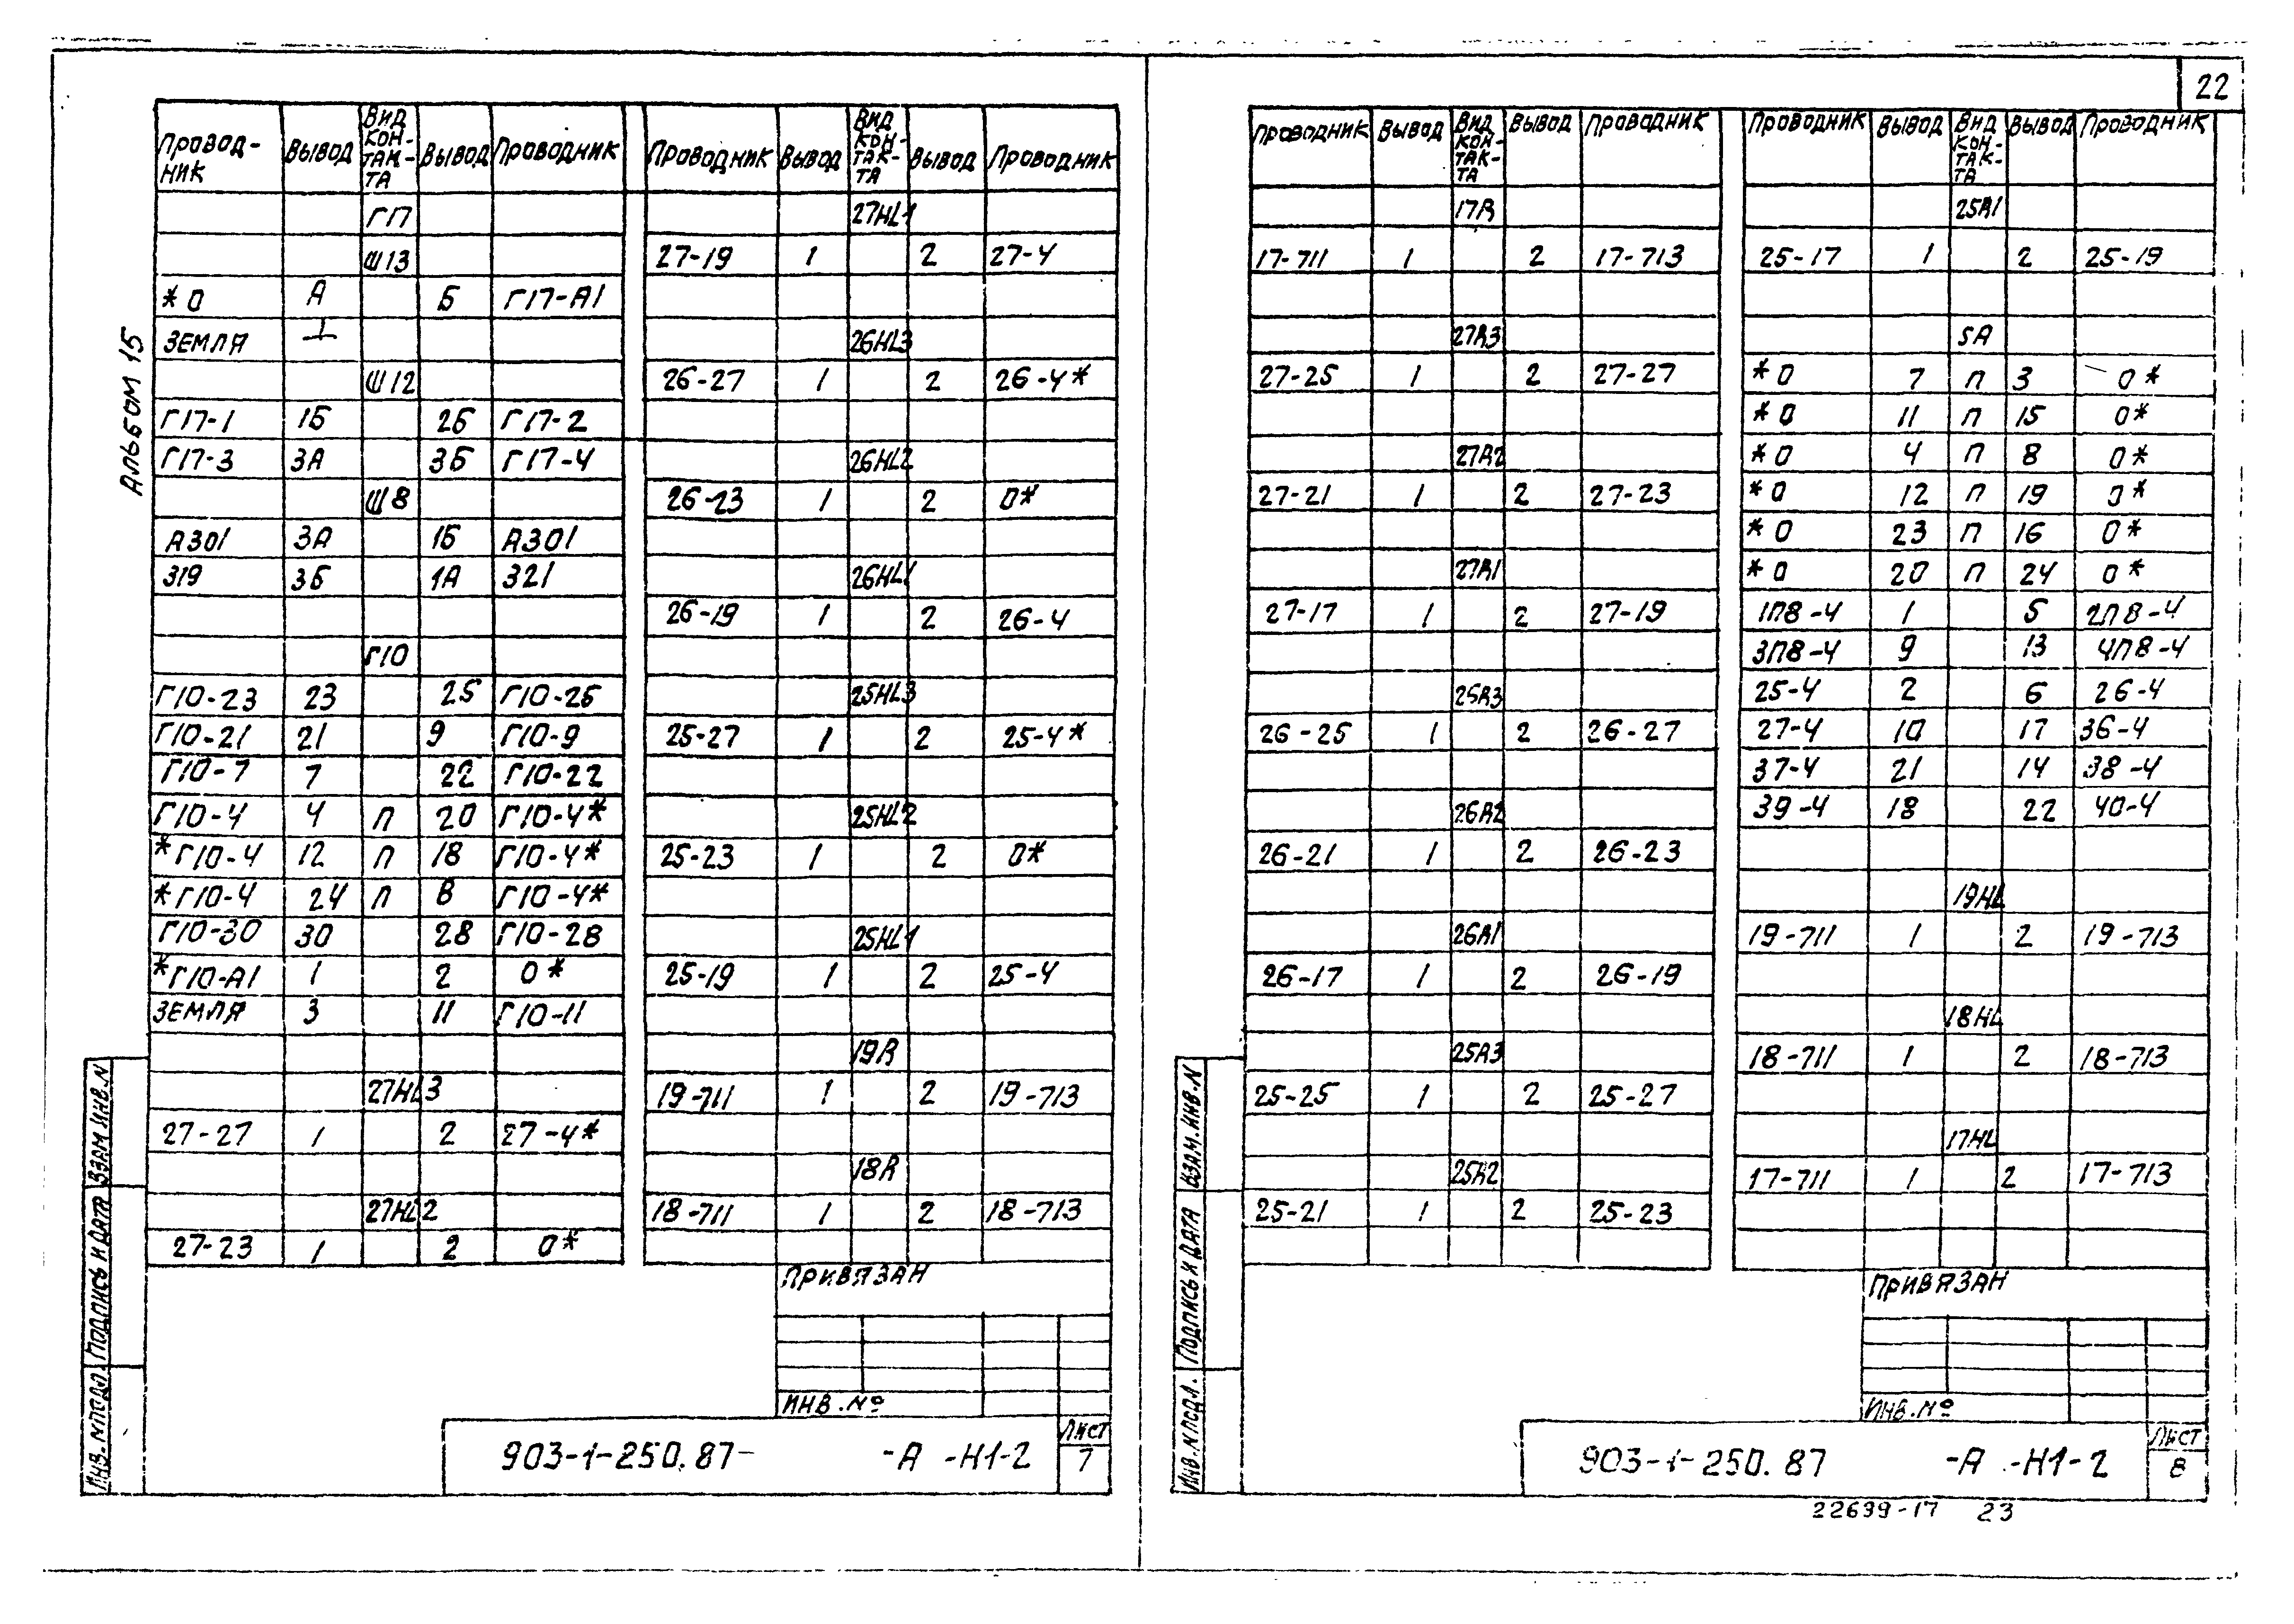 22
АЛЬБОМ 15
ПРОВОД-НИК ВЫВОД ВИД КОН-ТАК-ТА ВЫВОД ПРОВОДНИК
Г17
Ш13
*0 А Б Г17-А1
ЗЕМЛЯ ⊥
Ш12
Г17-1 1Б 2Б Г17-2
Г17-3 3А 3Б Г17-4
Ш8
А301 3А 1Б А301
319 3Б 1А 321
Г10
Г10-23 23 25 Г10-25
Г10-21 21 9 Г10-9
Г10-7 7 22 Г10-22
Г10-4 4 П 20 Г10-4*
*Г10-4 12 П 18 Г10-4*
*Г10-4 24 П 8 Г10-4*
Г10-30 30 28 Г10-28
*Г10-А1 1 2 0*
ЗЕМЛЯ 3 11 Г10-11
27HL3
27-27 1 2 27-4*
27HL2
27-23 1 2 0*
ПРОВОДНИК ВЫВОД ВИД КОН-ТАК-ТА ВЫВОД ПРОВОДНИК
27HL1
27-19 1 2 27-4
26HL3
26-27 1 2 26-4*
26HL2
26-23 1 2 0*
26HL1
26-19 1 2 26-4
25HL3
25-27 1 2 25-4*
25HL2
25-23 1 2 0*
25HL1
25-19 1 2 25-4
19R
19-711 1 2 19-713
18R
18-711 1 2 18-713
ПРИВЯЗАН
ИНВ.№
903-1-250.87- -А -Н1-2
ЛИСТ
7
ИНВ.№ПОДЛ. ПОДПИСЬ И ДАТА ВЗАМ ИНВ.N
ПРОВОДНИК ВЫВОД ВИД КОН-ТАК-ТА ВЫВОД ПРОВОДНИК
17R
17-711 1 2 17-713
27R3
27-25 1 2 27-27
27R2
27-21 1 2 27-23
27R1
27-17 1 2 27-19
26R3
26-25 1 2 26-27
26R2
26-21 1 2 26-23
26R1
26-17 1 2 26-19
25R3
25-25 1 2 25-27
25R2
25-21 1 2 25-23
ПРОВОДНИК ВЫВОД ВИД КОН-ТАК-ТА ВЫВОД ПРОВОДНИК
25R1
25-17 1 2 25-19
5А
*0 7 П 3 0*
*0 11 П 15 0*
*0 4 П 8 0*
*0 12 П 19 0*
*0 23 П 16 0*
*0 20 П 24 0*
1П8-4 1 5 2П8-4
3П8-4 9 13 4П8-4
25-4 2 6 26-4
27-4 10 17 36-4
37-4 21 14 38-4
39-4 18 22 40-4
19HL
19-711 1 2 19-713
18HL
18-711 1 2 18-713
17HL
17-711 1 2 17-713
ПРИВЯЗАН
ИНВ.№
903-1-250.87 -А -Н1-2
ЛИСТ
8
ИНВ.№ПОДЛ. ПОДПИСЬ И ДАТА ВЗАМ.ИНВ.N
22639-17 23